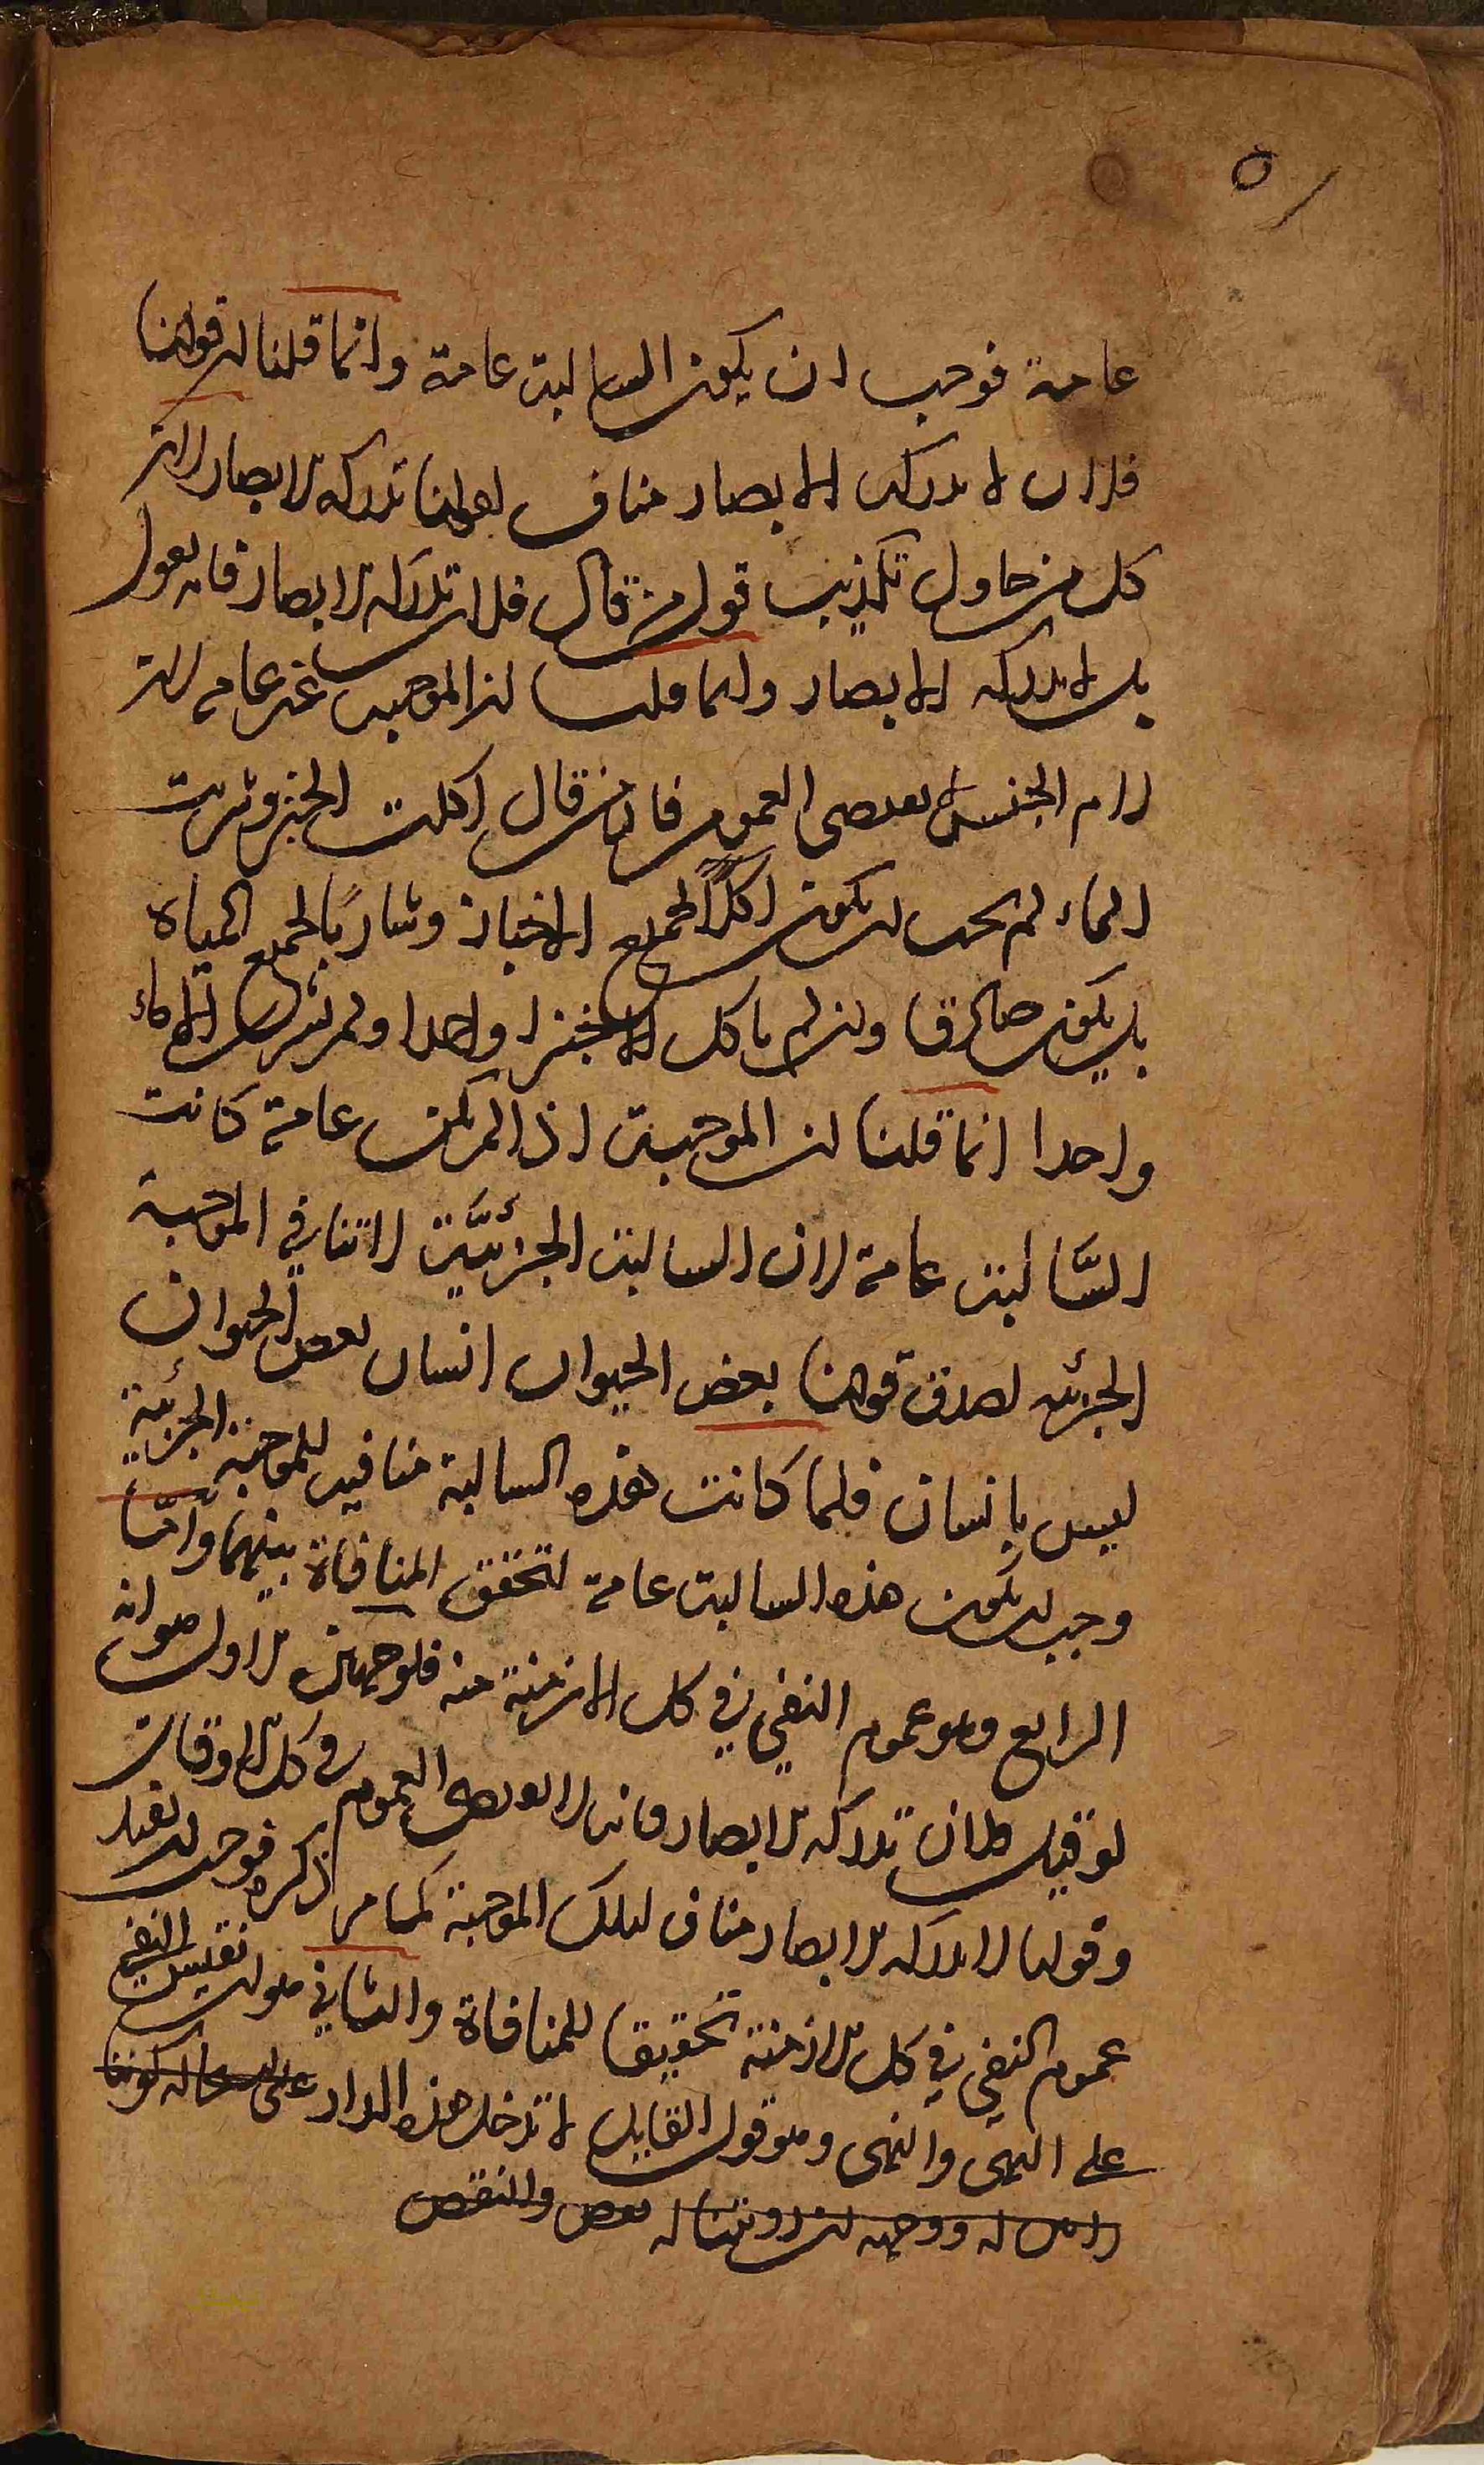 ٥
عامة فوجب ان يكون السالبة عامة وانما قلنا ان قولنا
فلان لا يدركه الابصار مناف لقولنا تدركه الابصار لان
كل من حاول تكذيب قول من قال فلان تدركه الابصار فانه يقول
بل لا يدركه الابصار وانما قلنا ان الموجبة غير عامة لان
لام الجنس لا يقتضى العموم فان من قال اكلت الخبز وشربت
الماء لم يجب ان يكون اكلاً لجميع الاخباز وشاربًا لجميع المياه
بل يكون صادقا وان لم ياكل الا خبزا واحدا ولم يشرب الا ماء
واحدا انما قلنا ان الموجبة اذا لم يكن عامة كانت
السَّالبة عامة لان السالبة الجزئيَّة لا تنافي الموجبة
الجزئية لصدق قولنا بعض الحيوان انسان بعض الحيوان
ليس بانسان فلما كانت هذه السالبة منافية للموجبة الجزئية
وجب ان يكون هذه السالبة عامة لتحقق المنافاة بينهما وامّا
الرابع وهو عموم النفي في كل الازمنة منه فلوجهين الاول هو انه
لو قيل فلان تدركه الابصار فانه لا يقتضى العموم في كل الاوقات
وقولنا لا يدركه الابصار مناف لتلك الموجبة كما مر ذكره فوجب ان يفيد
عموم النفي في كل الازمنة تحقيقا للمنافاة والثاني هو ان نقيس النفي
على النهى والنهى وهو قول القايل لا تدخل هذه الدار على